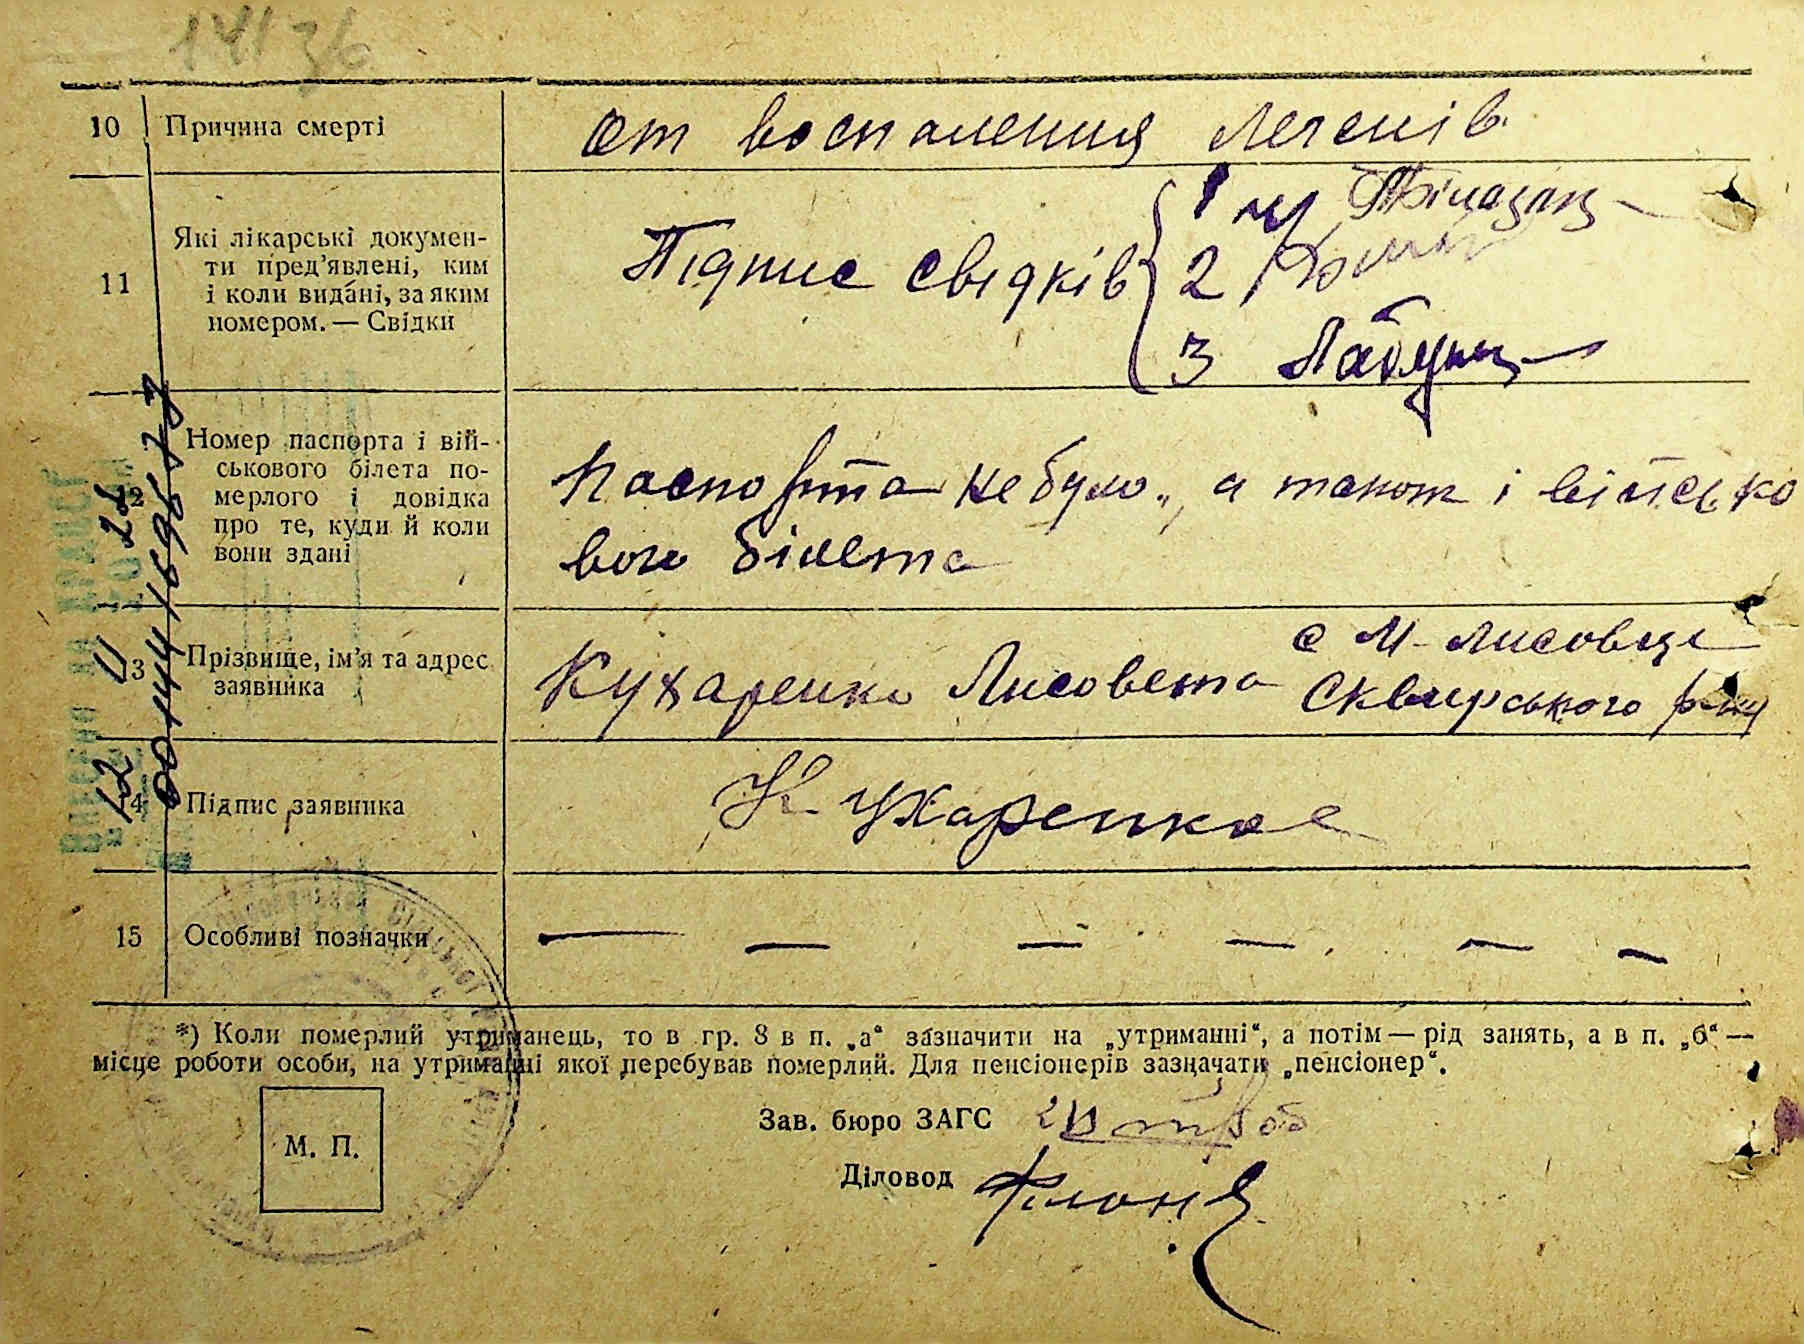 10 Причина смерті От воспаления Легенів.
11 Які лікарські докумен-
ти пред'явлені, ким
і коли видані, за яким
номером. — Свідки
Підпис свідків
1
2
3 Лабунец
12 Номер паспорта і вій-
ськового білета по-
мерлого і довідка
про те, куди й коли
вони здані
Паспорта не було, а також і військо
вого білета
13 Прізвище, ім'я та адрес
заявника
Кухаренко Лисовета с М-Лисовцi
Сквирського р-ну
14 Підпис заявника
Кухаренкое
15 Особливі позначки — — — — — —
*) Коли померлий утриманець, то в гр. 8 в п. „а“ зазначити на „утриманні“, а потім — рід занять, а в п. „б“ —
місце роботи особи, на утриманні якої перебував померлий. Для пенсіонерів зазначати „пенсіонер“.
Зав. бюро ЗАГС
М. П.
Діловод